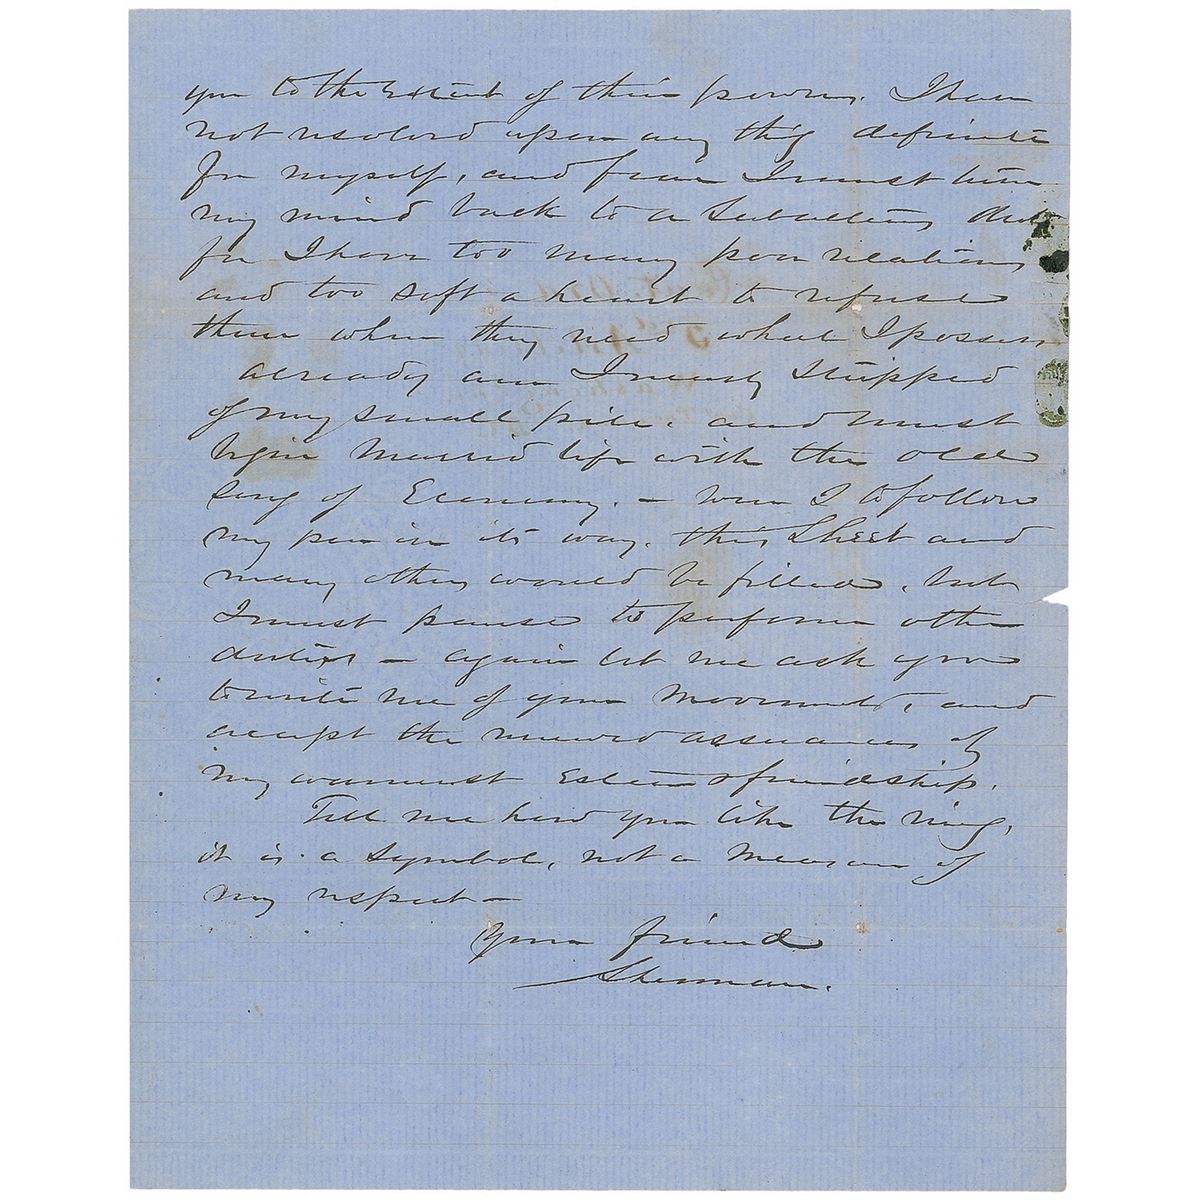 you to the Extent of their powers. I have
not resolved upon any thing definite
for myself, and fear I must turn
my mind back to a Subalterns
for I have too many poor relations
and too soft a heart to refuse
them when they need what I possess
already am I nearly stripped
of my small pile. and must
begin married life with the old
song of Economy. – were I to follow
my pen in its way. this Sheet and
many others would be filled, but
I must pause to perform other
duties – again let me ask you
to write me of your movements, and
accept the renewed assurances of
my warmest Esteem & friendship.
Tell me how you like the ring,
it is a symbol, not a measure of
my respect –
Your friend
Sherman.